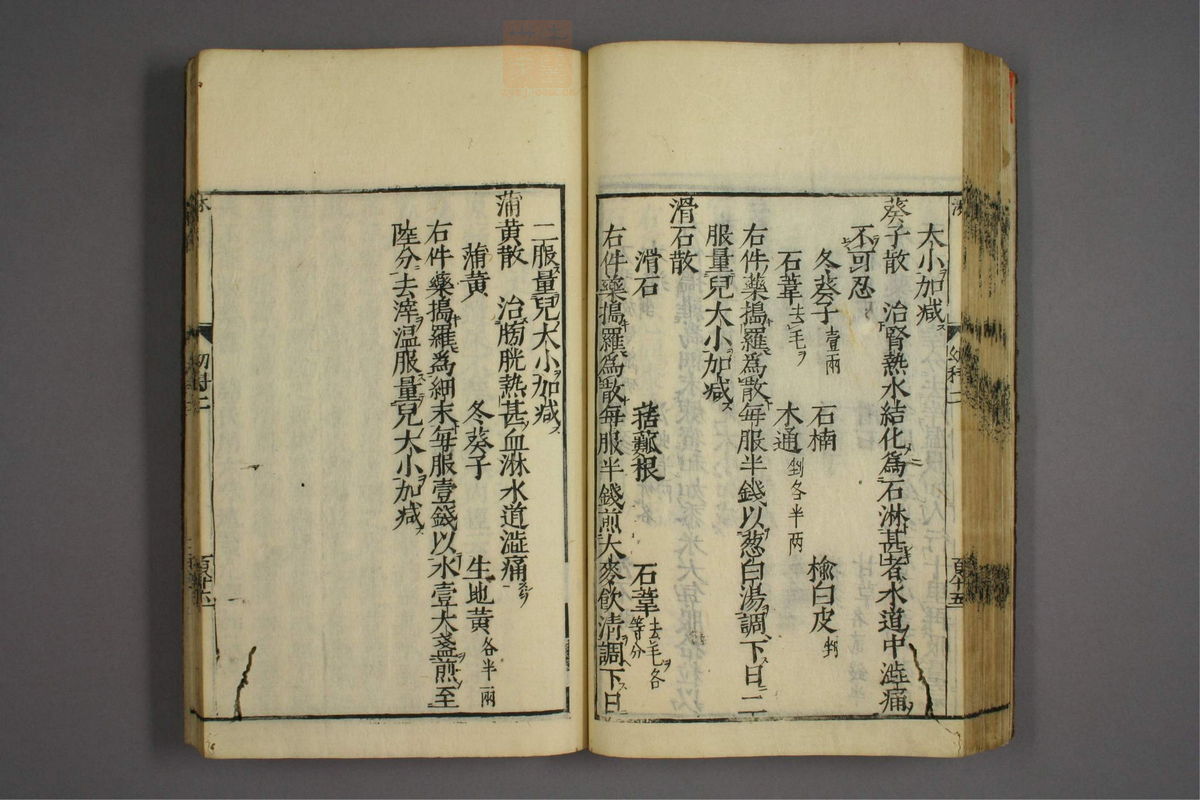 大小加减
葵子散 治腎熱水結化爲石淋甚者水道中澁痛
不可忍
冬葵子壹兩 石楠 楡白皮剉
石葦去毛 木通剉各半兩
右件藥搗羅爲散毎服半錢以葱白湯調下日二
服量兒大小加减
滑石散
滑石 䒷蔞根 石葦去毛各等分
右件藥搗羅爲散毎服半錢煎大麥飲清調下日
二服量兒大小加减
蒲黄散 治膀胱熱甚血淋水道澁痛
蒲黄 冬葵子 生地黄各半兩
右件藥搗羅爲細末毎服壹錢以水壹大盞煎至
陸分去滓温服量兒大小加减